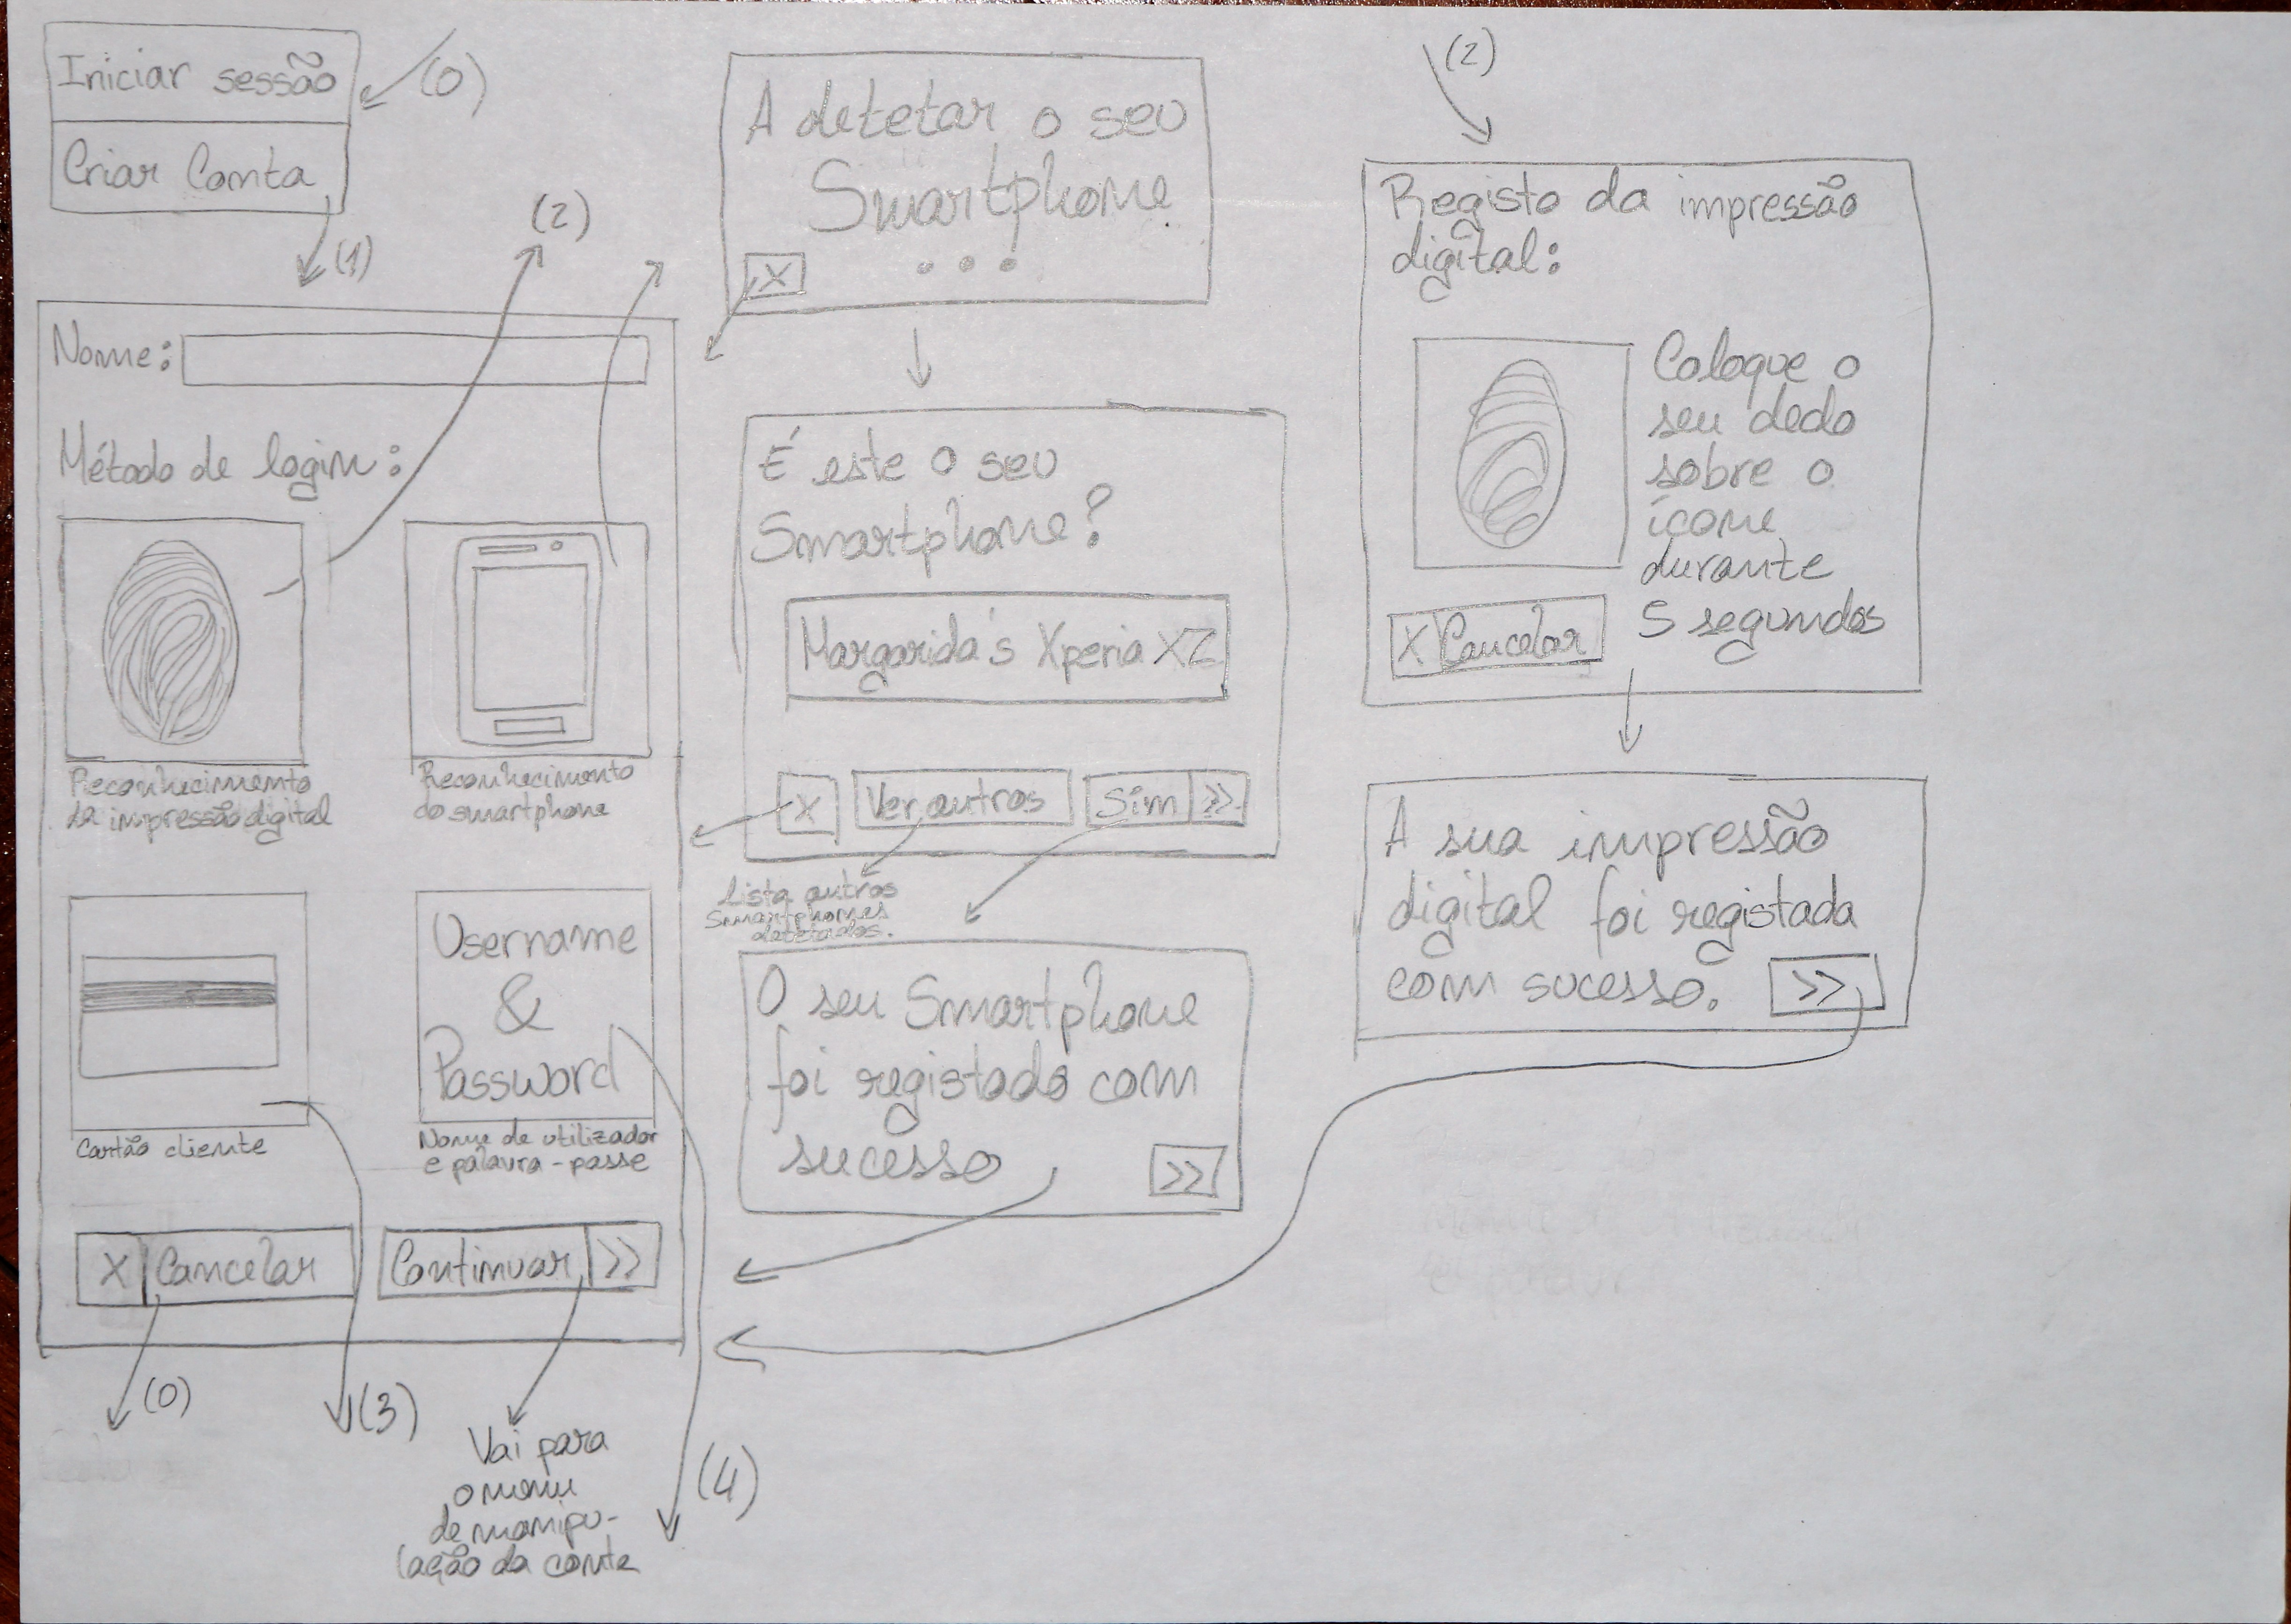 Iniciar sessão
(0)
Criar Conta
(1)
Nome:
Método de login:
(2)
Reconhecimento
da impressão digital
Reconhecimento
do smartphone
Cartão cliente
Username
&
Password
Nome de utilizador
e palavra-passe
X Cancelar
Continuar >>
(0)
(3)
Vai para
o menu
de manipu-
lação da conta
(4)
A detetar o seu
Smartphone
...
X
É este o seu
Smartphone?
Margarida's Xperia XZ
X
Ver outros
Sim >>
Lista outros
Smartphones
detetados.
O seu Smartphone
foi registado com
sucesso
>>
(2)
Registo da impressão
digital:
Coloque o
seu dedo
sobre o
ícone
durante
5 segundos
X Cancelar
A sua impressão
digital foi registada
com sucesso. >>